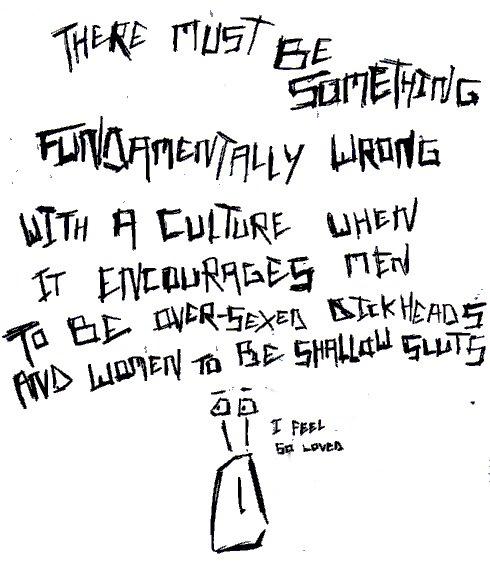 THERE MUST BE
SOMETHING
FUNDAMENTALLY WRONG
WITH A CULTURE WHEN
IT ENCOURAGES MEN
TO BE OVER-SEXED DICKHEADS
AND WOMEN TO BE SHALLOW SLUTS
I FEEL
SO LOVED